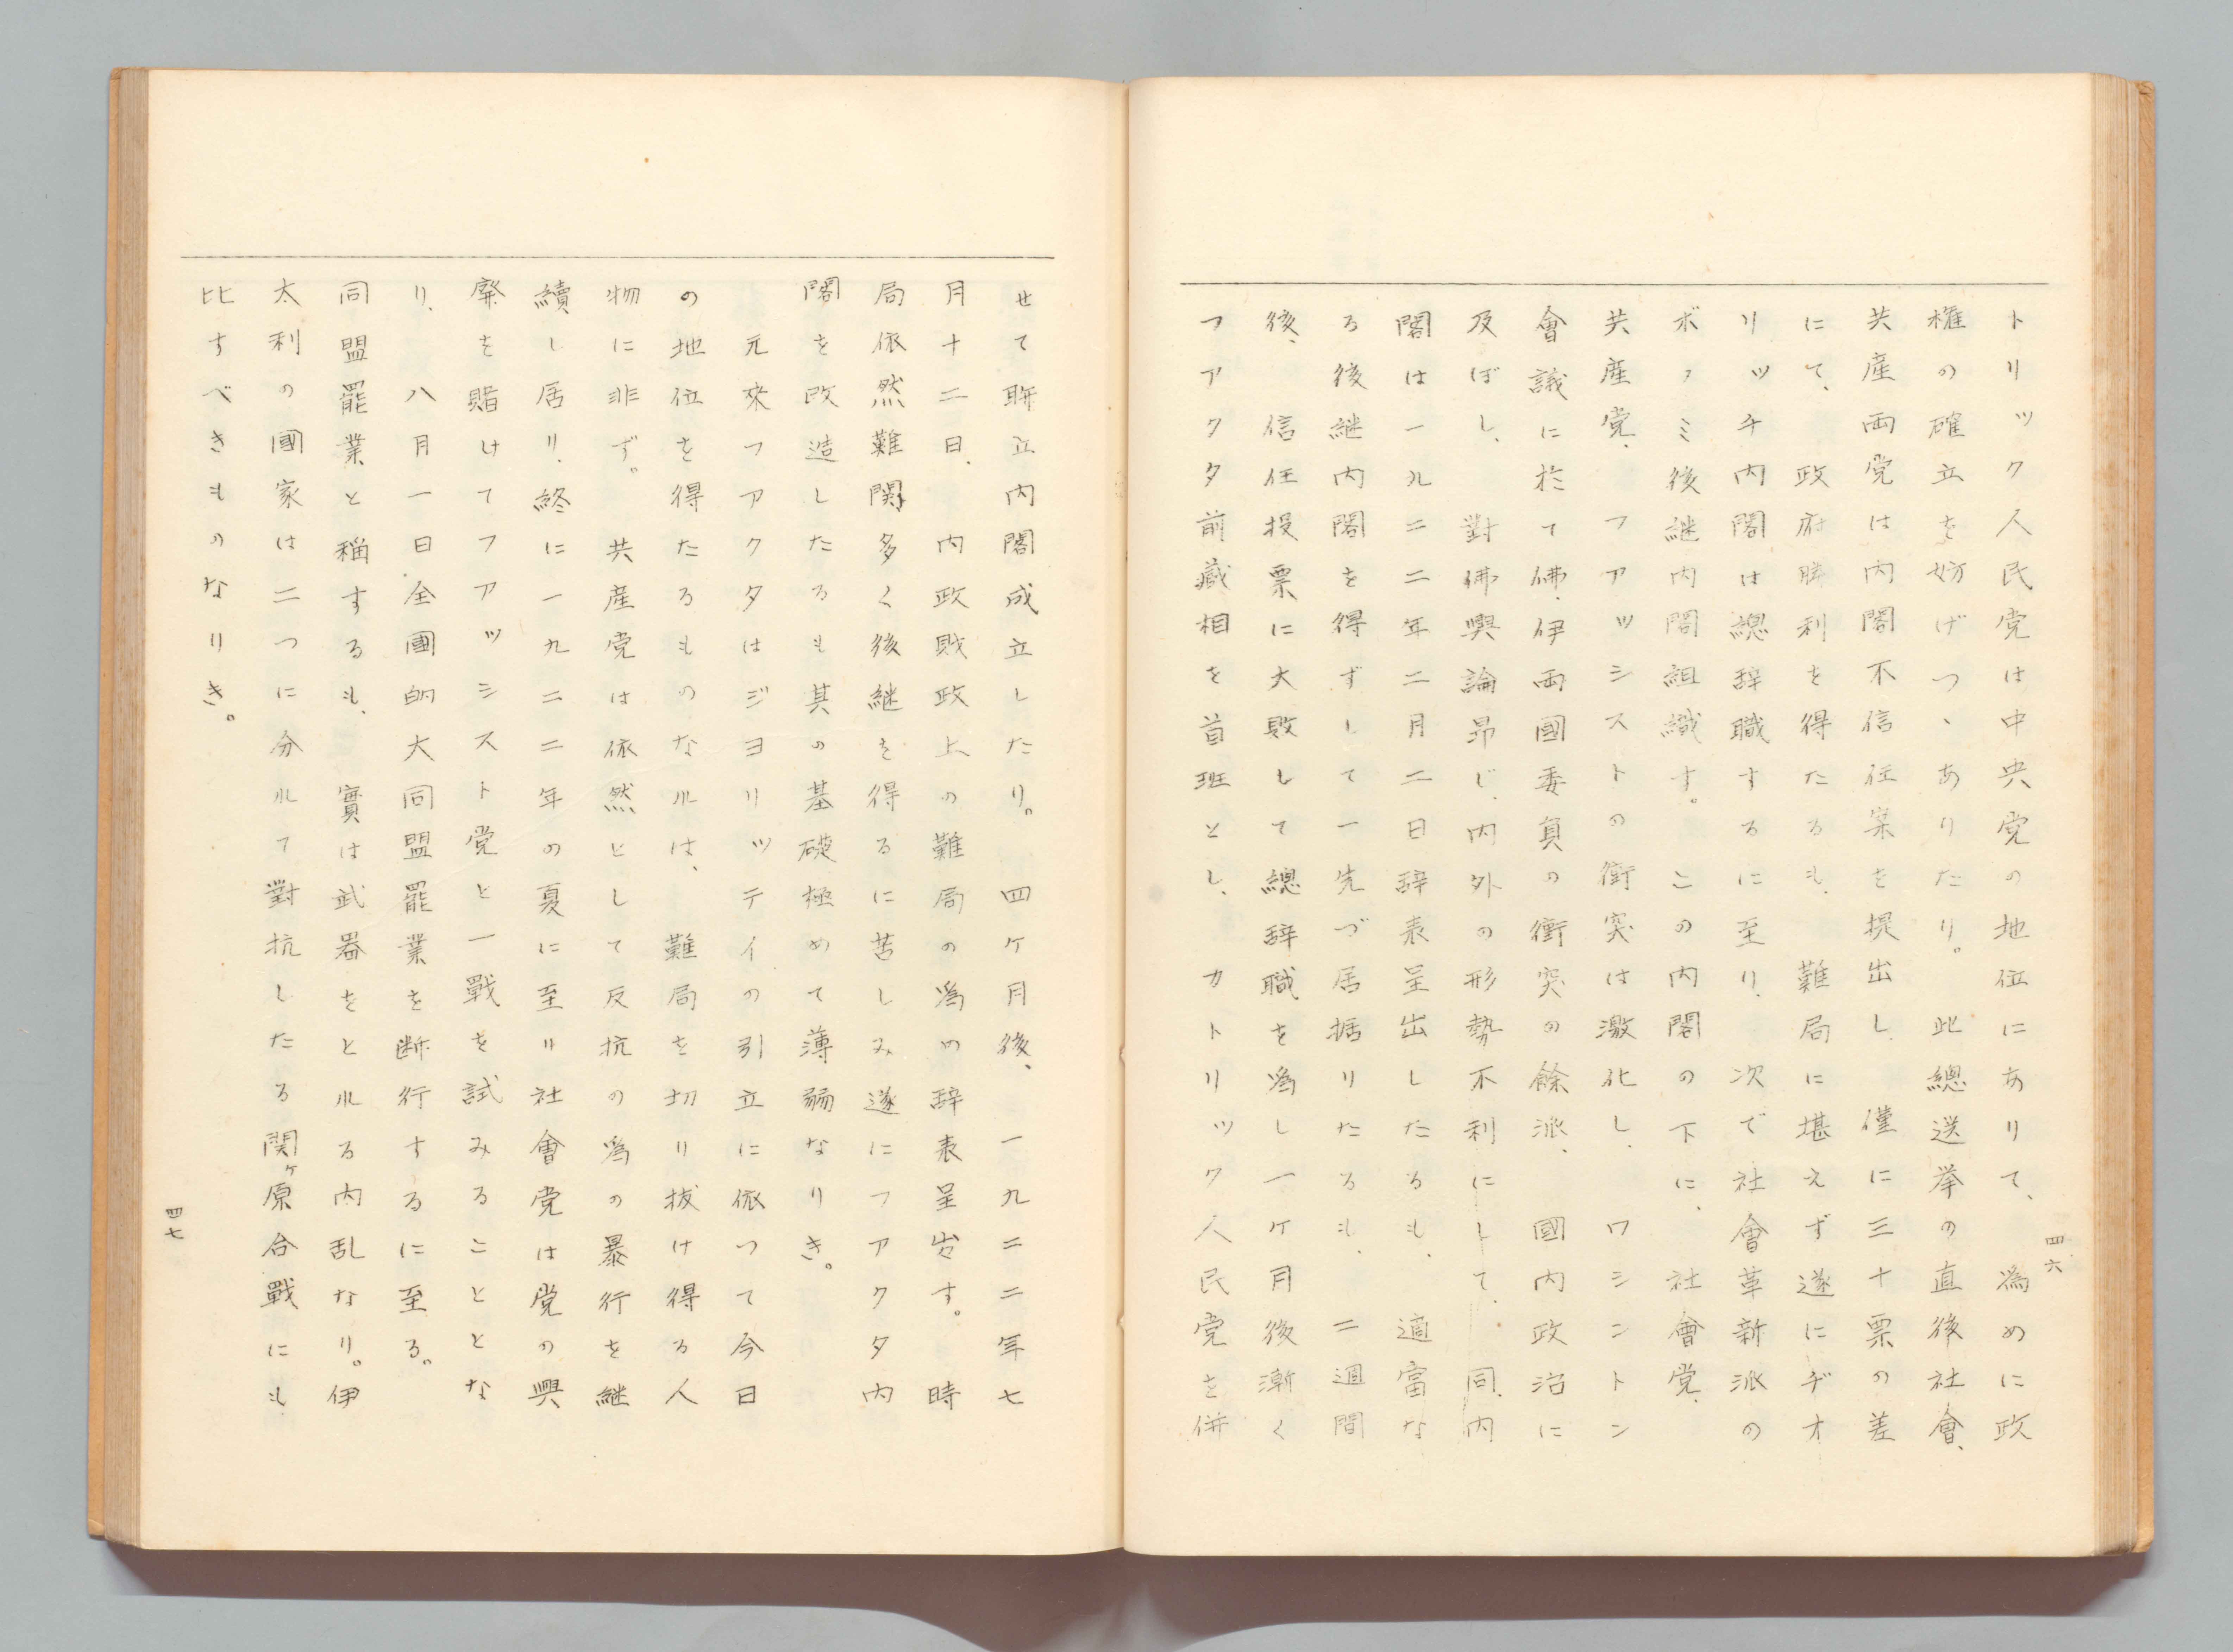 トリック人民党は中央党の地位にありて、為めに政
権の確立を妨げつゝありたり。此總送挙の直後社會、
共産両党は内閣不信任案を提出し、僅に三十票の差
にて、政府勝利を得たるも、難局に堪えず遂にヂオ
リッチ内閣は總辞職するに至り、次で社會革新派の
ボノミ後継内閣組織す。この内閣の下に、社會党、
共産党、フアツシストの衝突は激化し、ワシントン
會議に於て佛、伊両國委員の衝突の餘派、國内政治に
及ぼし、對佛輿論昂じ、内外の形勢不利にして、同、内
閣は一九二二年二月二日辞表呈出したるも、適当な
る後継内閣を得ずして一先づ居据りたるも、二週間
後、信任投票に大敗して總辞職を為し一ケ月後漸く
フアクタ前蔵相を首班とし、カトリック人民党を併
四六
せて聨立内閣成立したり。四ケ月後、一九二二年七
月十二日、内政財政上の難局の為め辞表呈出す。時
局依然難関多く後継を得るに苦しみ遂にフアクタ内
閣を改造したるも其の基礎極めて薄弱なりき。
元來フアクタはジヨリツテイの引立に依つて今日
の地位を得たるものなれば、難局を切り抜け得る人
物に非ず。共産党は依然として反抗の為の暴行を継
續し居り、終に一九二二年の夏に至り社會党は党の興
廃を賭けてフアッシスト党と一戰を試みることとな
り、八月一日全國的大同盟罷業を断行するに至る。
同盟罷業と稱するも、實は武器をとれる内乱なり。伊
太利の國家は二つに分れて對抗したる関ヶ原合戰にも
比すべきものなりき。
四七